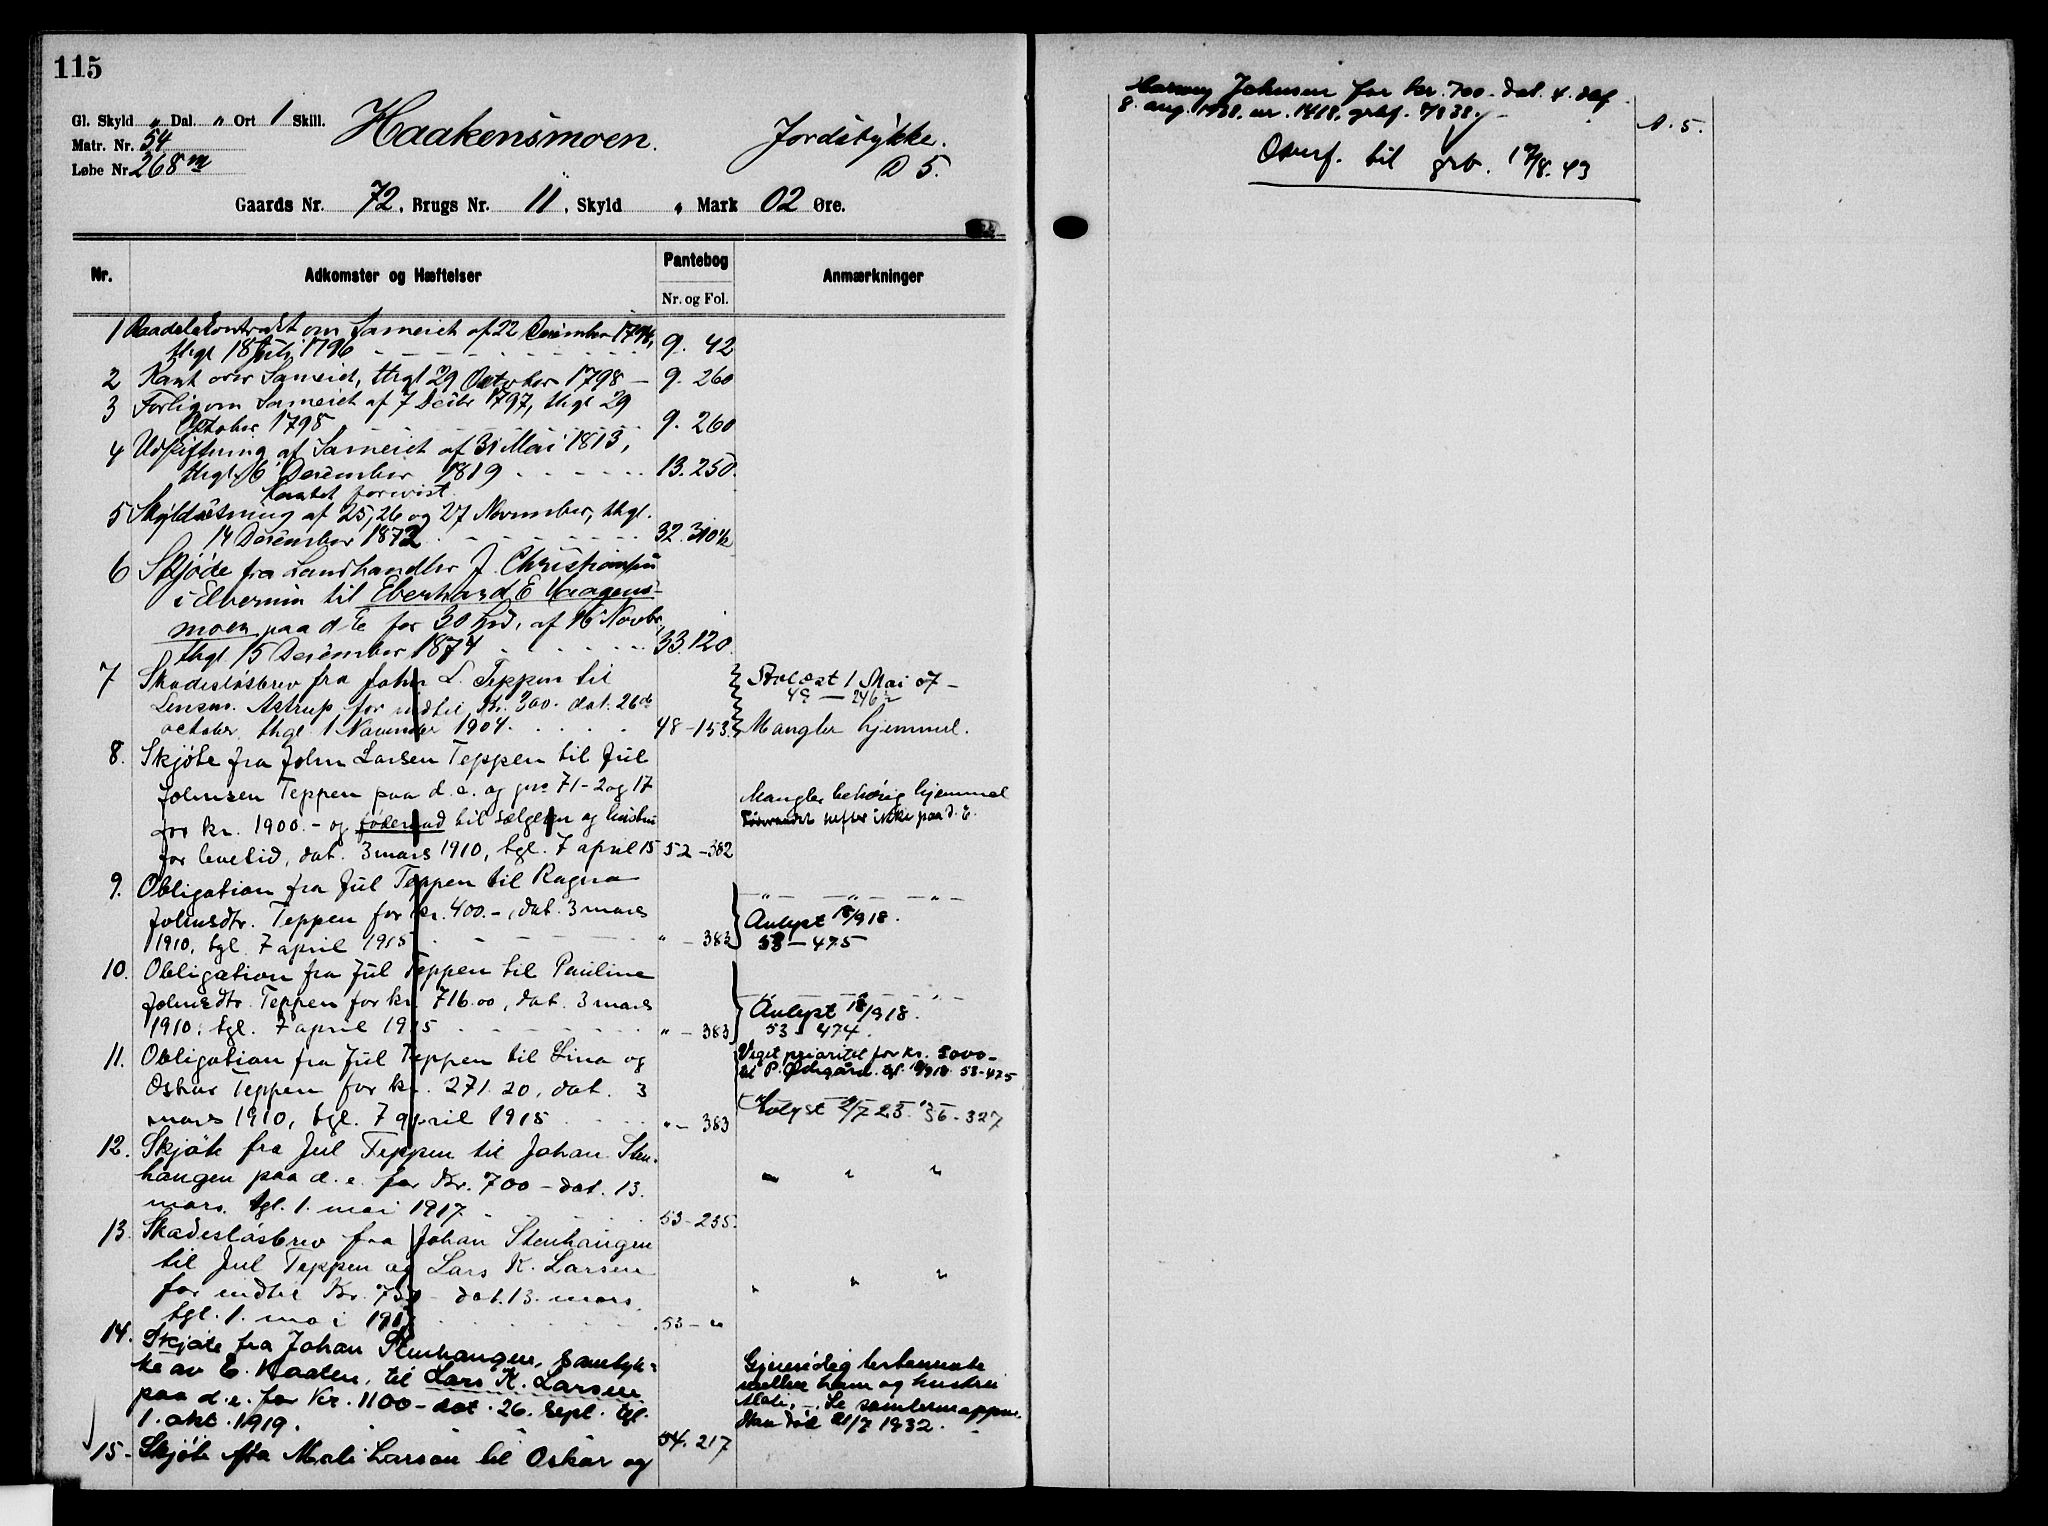 115
Gl. Skyld " Dal. " Ort 1 Skill.
Matr. Nr. 54
Løbe Nr. 268 m
Haakensmoen.
Jordstykke.
D 5.
Gaards Nr. 72, Brugs Nr. 11, Skyld " Mark 02 Øre.
Nr. Adkomster og Hæftelser Pantebog Anmærkninger
Nr. og Fol.
1 Raadelskontrakt om Sameiet af 22 December
thgl 18 Juli 1796 9. 42
2 Kart over Sameiet, thgl 29 October 1798 - 9. 260
3 Forlig om Sameiet af 7 Decbr 1797, thgl 29
October 1798 9. 260
4 Udskiftning af Sameiet af 31 Mai 1813,
thgl 6 December 1819 13. 250.
Kartet forevist.
5 Skyldsætning af 25, 26 og 27 November, thgl.
14 December 1872 32. 310
6 Skjøde fra Landhandler J. Christiansen
i Elverum til Eberhard E Haagens-
moen paa d E for 30 Spd. af 16 Novbr,
thgl. 15 December 1874 33. 120.
7 Skadesløsbrev fra John L. Teppen til
Lensm. Astrup for indtil Kr. 300. dat. 26de
october, thgl. 1 November 1904. 48 - 153.
Avlæst 1 Mai 07 -
49 - 246
Mangler hjemmel.
8. Skjøte fra John Larsen Teppen til Jul
Johnsen Teppen paa d. e. og gno 71 - 2 og 17
for kr. 1900. - og føderaad til sælgeren og hustru
for levetid, dat. 3 mars 1910, tgl. 7 april 15 52 - 382
Mangler behørig hjemmel
Føderaadet hefter ikke paa d. E.
9. Obligation fra Jul Teppen til Ragna
Johnsdtr. Teppen for kr. 400. -, dat. 3 mars
1910, tgl. 7 april 1915 " - 383
" - " - " -
Avlyst 18/9 18.
53 - 475
10. Obligation fra Jul Teppen til Pauline
Johnsdtr. Teppen for kr. 716.00, dat. 3 mars
1910, tgl. 7 april 1915 " - 383
" - " - " -
Avlyst 18/9 18.
53 - 474.
11. Obligation fra Jul Teppen til Lina og
Oskar Teppen for kr. 271. 20, dat. 3
mars 1910, tgl. 7 april 1915 " - 383
Veget prioritet for kr. 5000 -
til P. Ødegård. tgl. 18/9 18 53 - 475
Avlyst 2/7 23. 56 - 327
12. Skjøte fra Jul Teppen til Johan Sten-
haugen paa d. e. for Kr. 700 - dat. 13.
mars. tgl. 1. mai 1917. 53 - 235.
" " "
13. Skadesløsbrev fra Johan Stenhaugen
til Jul Teppen og Lars K. Larsen
for indtil Kr. 750 - dat. 13. mars.
tgl. 1. mai 1917 53 - "
" " "
14. Skjøte fra Johan Stenhaugen, samtyk-
ke av E. Haaten, til Lars K. Larsen
paa d. e. for Kr. 1100 - dat. 26. sept. tgl.
1. okt. 1919. 54. 217
Gjensidig testamente
mellem ham og hustru
Mali. Se samlemappen.
Han død 21/7 1932.
15 - Skjøte fra Mali Larsen til Oskar og
Johnsen for kr. 700. dat. 4. dgf.
8. aug. 1938. nr. 1418. grbf. 8/8 38.
D. 5.
Overf. til grb. 17/8. 43